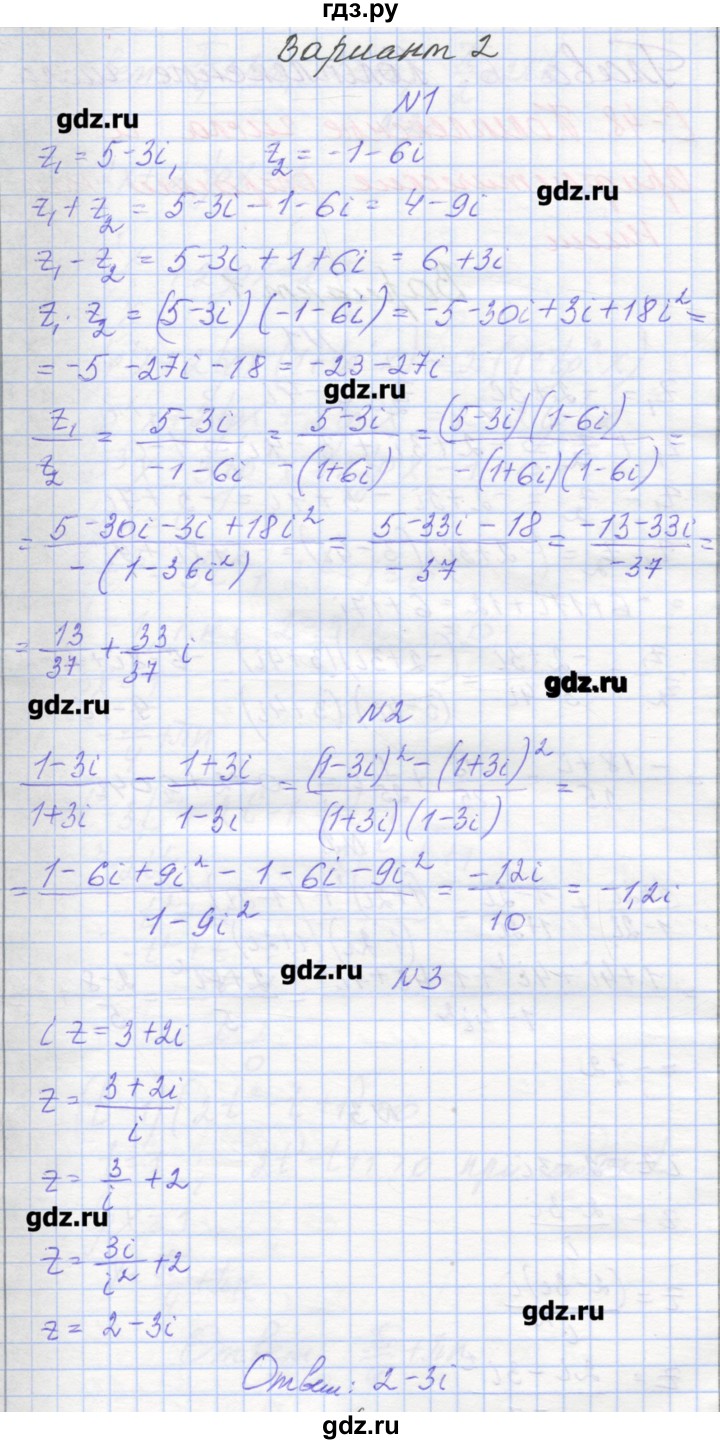 гдз.ру
Вариант 2
N1
gdz.ru
z₁ = 5-3i, z₂ = -1-6i
gdz.ru
z₁ + z₂ = 5-3i-1-6i = 4-9i
z₁ - z₂ = 5-3i+1+6i = 6+3i
z₁ · z₂ = (5-3i)(-1-6i) = -5-30i+3i+18i² =
= -5 -27i -18 = -23-27i
gdz.ru
z₁/z₂ = (5-3i)/(-1-6i) = (5-3i)/(-(1+6i)) = ((5-3i)(1-6i))/(-(1+6i)(1-6i)) =
= (5-30i-3i+18i²)/(-(1-36i²)) = (5-33i-18)/(-37) = (-13-33i)/(-37) =
= 13/37 + 33/37 i
gdz.ru
gdz.ru
N2
(1-3i)/(1+3i) - (1+3i)/(1-3i) = ((1-3i)² - (1+3i)²)/((1+3i)(1-3i)) =
= (1-6i+9i² - 1-6i-9i²)/(1-9i²) = (-12i)/10 = -1,2i
gdz.ru
N3
iz = 3+2i
z = (3+2i)/i
z = 3/i + 2
gdz.ru
z = 3i/i² + 2
gdz.ru
z = 2-3i
Ответ: 2-3i
gdz.ru